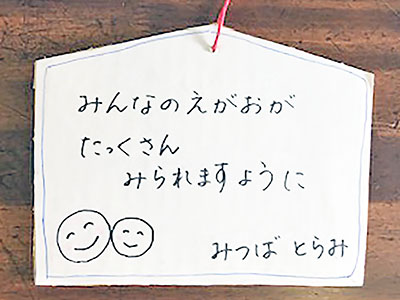 みんなのえがおが
たっくさん
みられますように
みつば とらみ